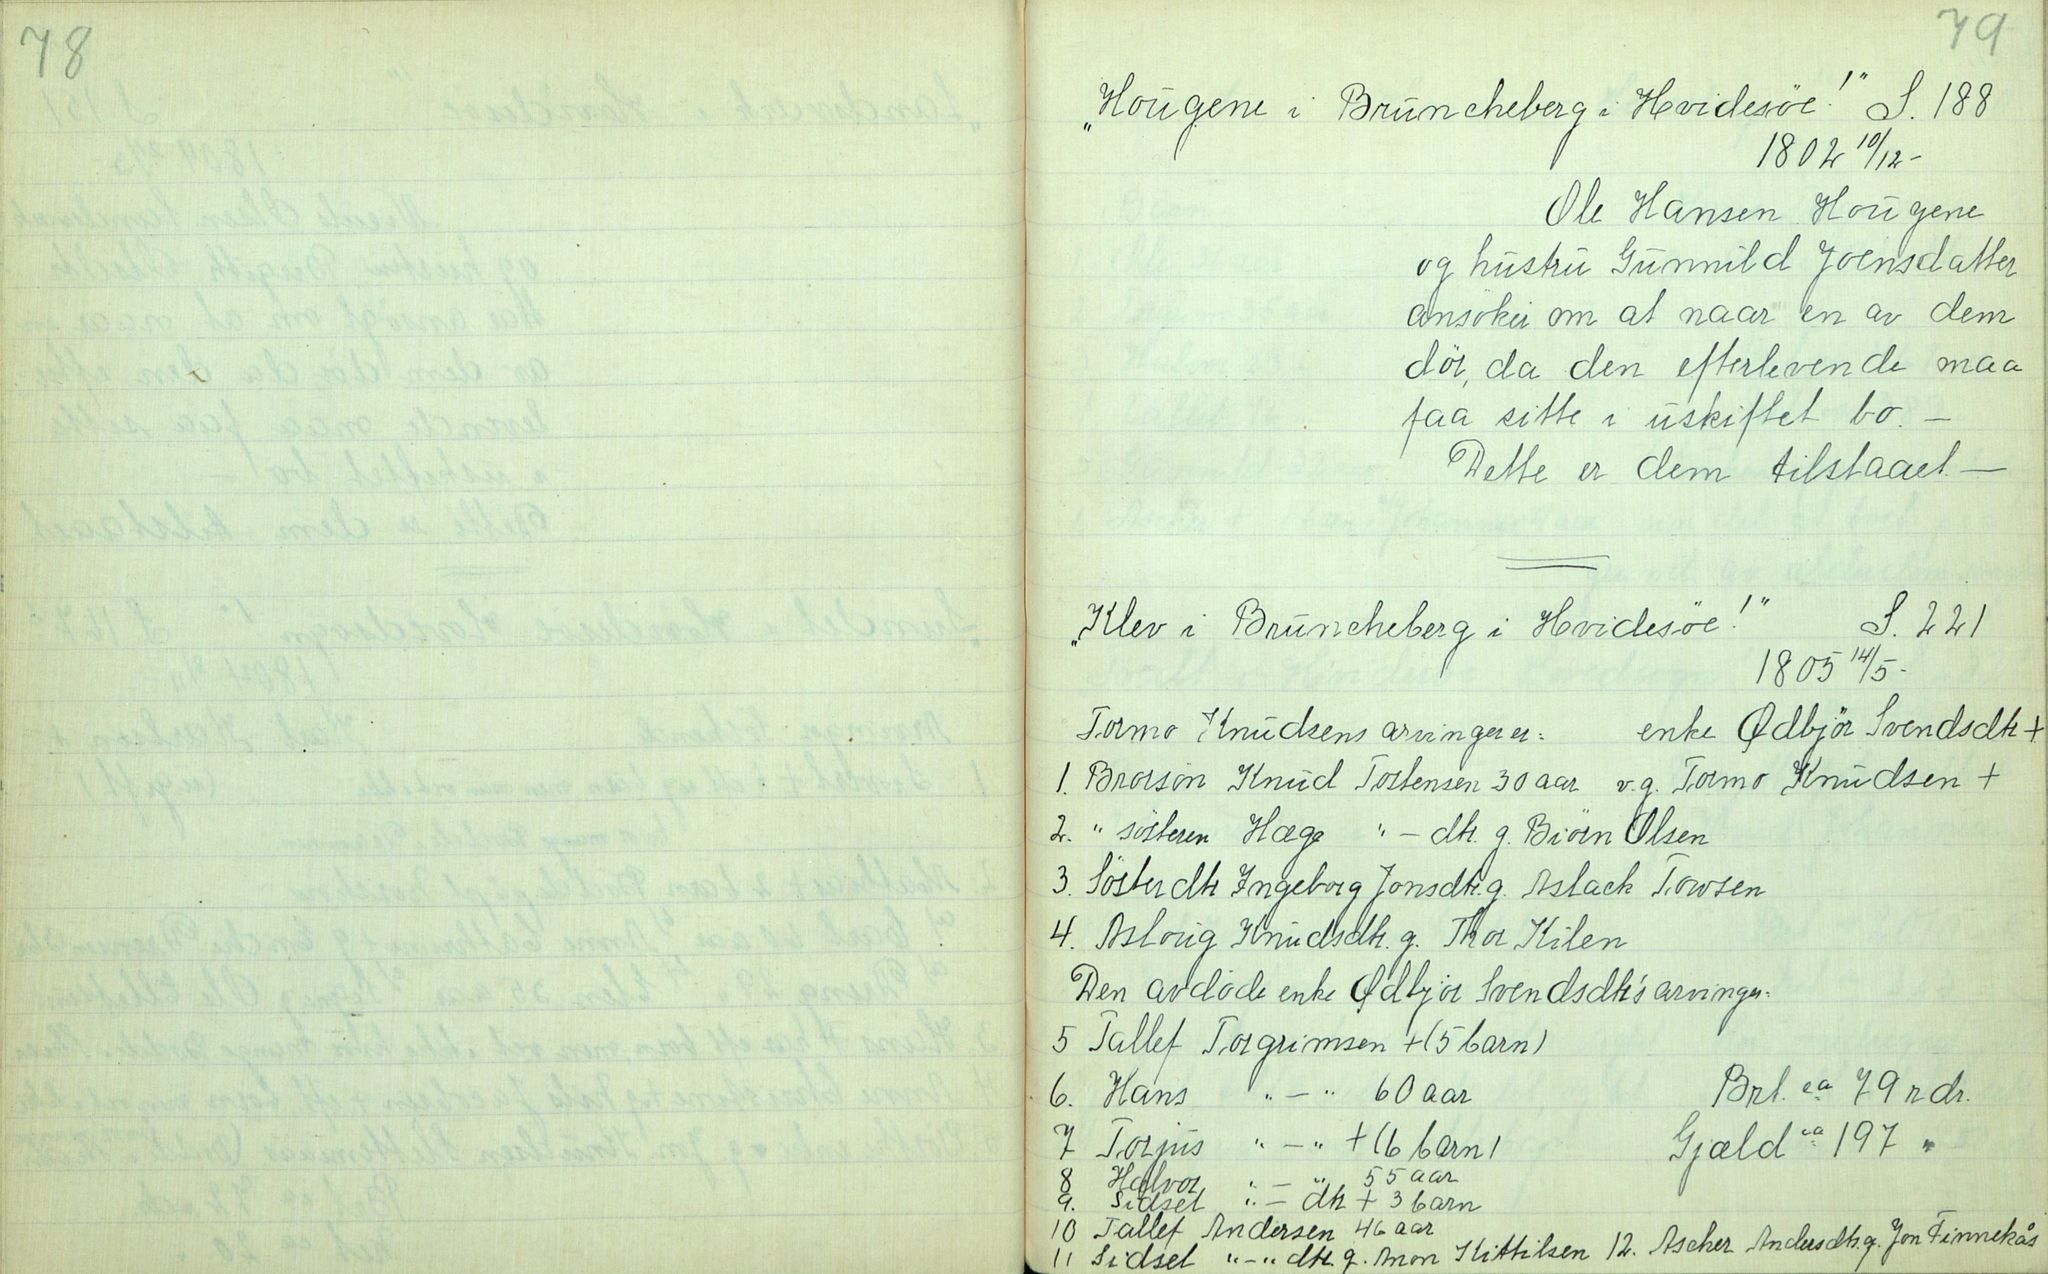 78
79
„Hougene i Brūncheberg i Hvidesöe!" S. 188
1802 10/12-
Ole Hansen Hoūgene
og hūstrū Gūnnild Joensdatter
ansöker om at naar en av dem
dör, da den efterlevende maa
faa sitte i ūskiftet bo. -
Dette er dem tilstaaet —
„Klev i Brūncheberg i Hvidesöe!" S. 221
1805 14/5-
Tormo Knūdsens arvinger er: enke Ødbjör Svendsdtr +
1. Brorsøn Knūd Tostensen 30 aar v.g. Tormo Knūdsen +
2. " sösteren Hæge " - dtr. g. Biörn Olsen
3. Söster dtr Ingeborg Jonsdtr. g. Aslack Tovsen
4. Asloūg Knūdsdtr. g. Thor Kilen
Den avdöde enke Ødbjör Svendsdtr's arvinger:
5 Tallef Torgrimsen + (5 barn)
6. Hans " - " 60 aar Brt. ca 79 rdr.
7 Torjūs " - " + (6 barn) Gjæld ca 197 "
8 Halvor " - " 55 aar
9. Sidsel " - dtr + 3 barn
10 Tallef Andersen 46 aar
11 Sidsel " - " dtr. g. Anon Kittilsen 12. Ascher Andersdtr. g. Jon Finnekås